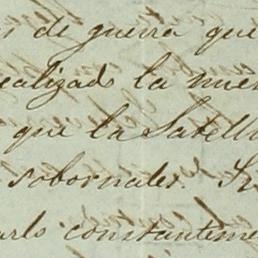 de guerra que
realizado la
que la Satell
sobornales. Si
arlo constanteme